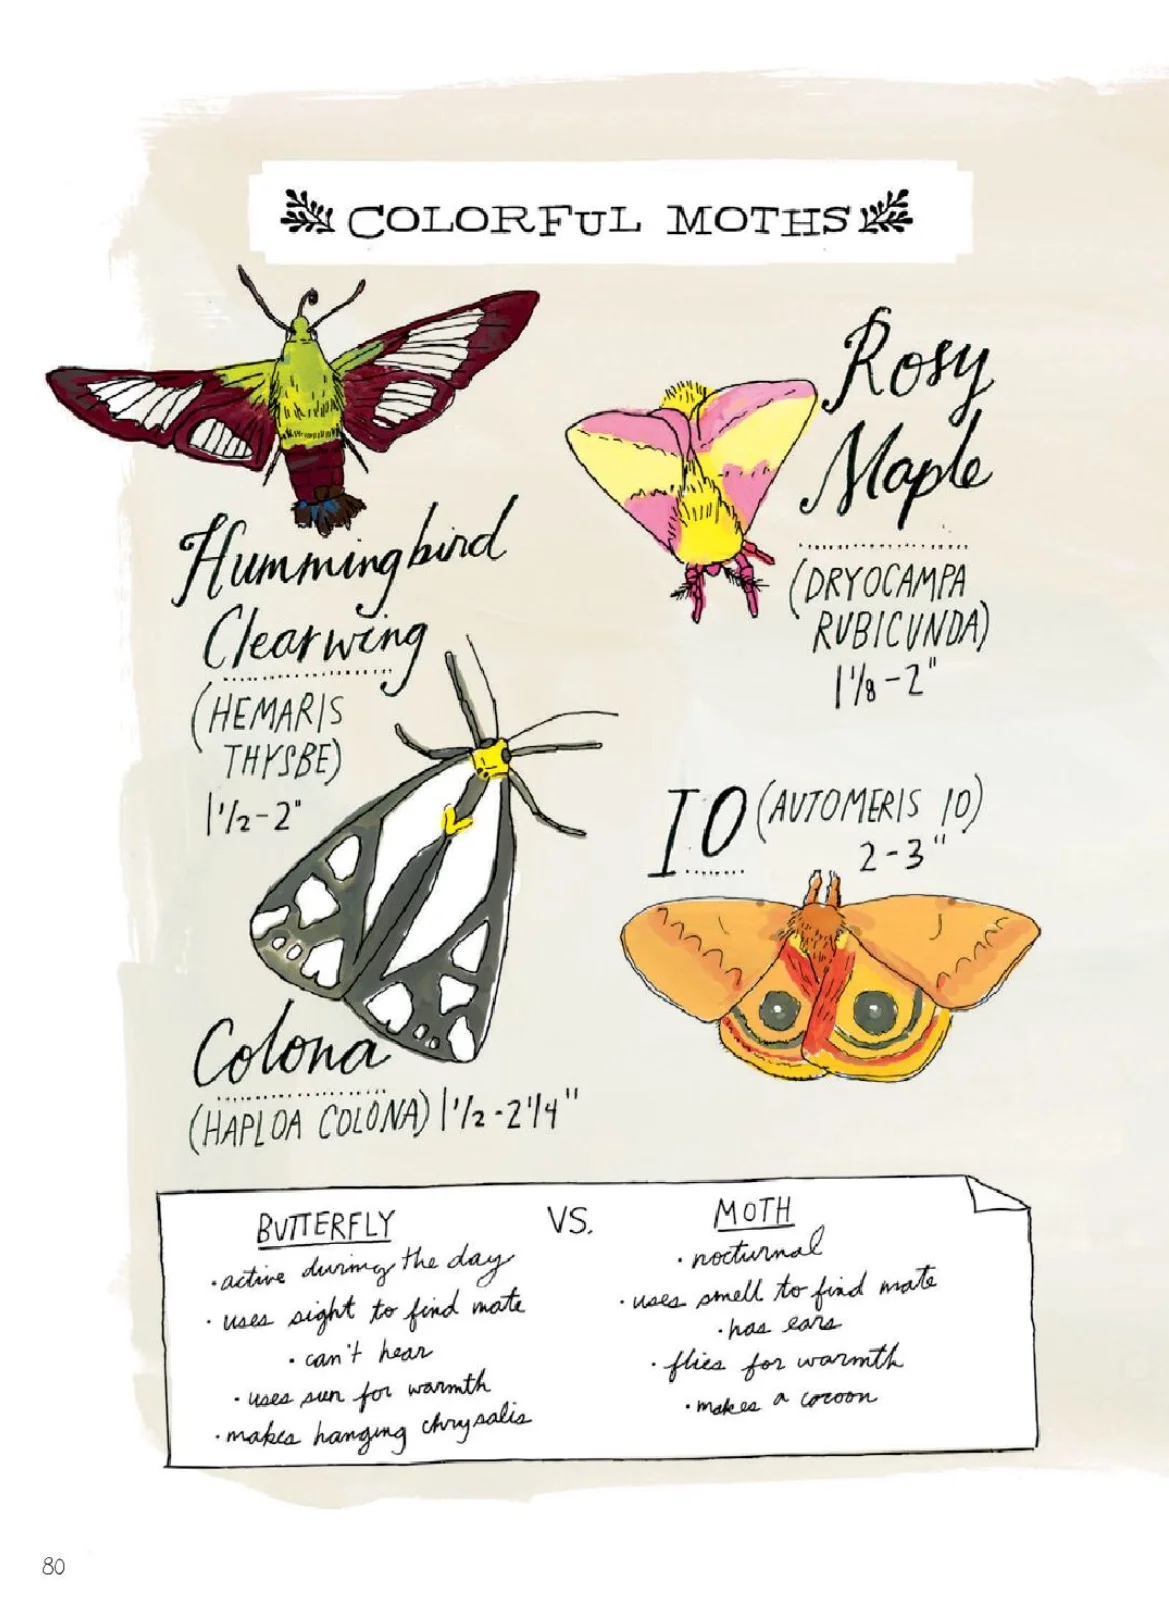 COLORFUL MOTHS
Hummingbird
Clearwing
(HEMARIS
THYSBE)
1 1/2-2"
Rosy
Maple
(DRYOCAMPA
RUBICUNDA)
1 1/8-2"
Colona
(HAPLOA COLONA) 1 1/2-2 1/4"
IO (AUTOMERIS IO)
2-3"
BUTTERFLY
• active during the day
• uses sight to find mate
• can't hear
• uses sun for warmth
• makes hanging chrysalis
VS.
MOTH
• nocturnal
• uses smell to find mate
• has ears
• flies for warmth
• makes a cocoon
80